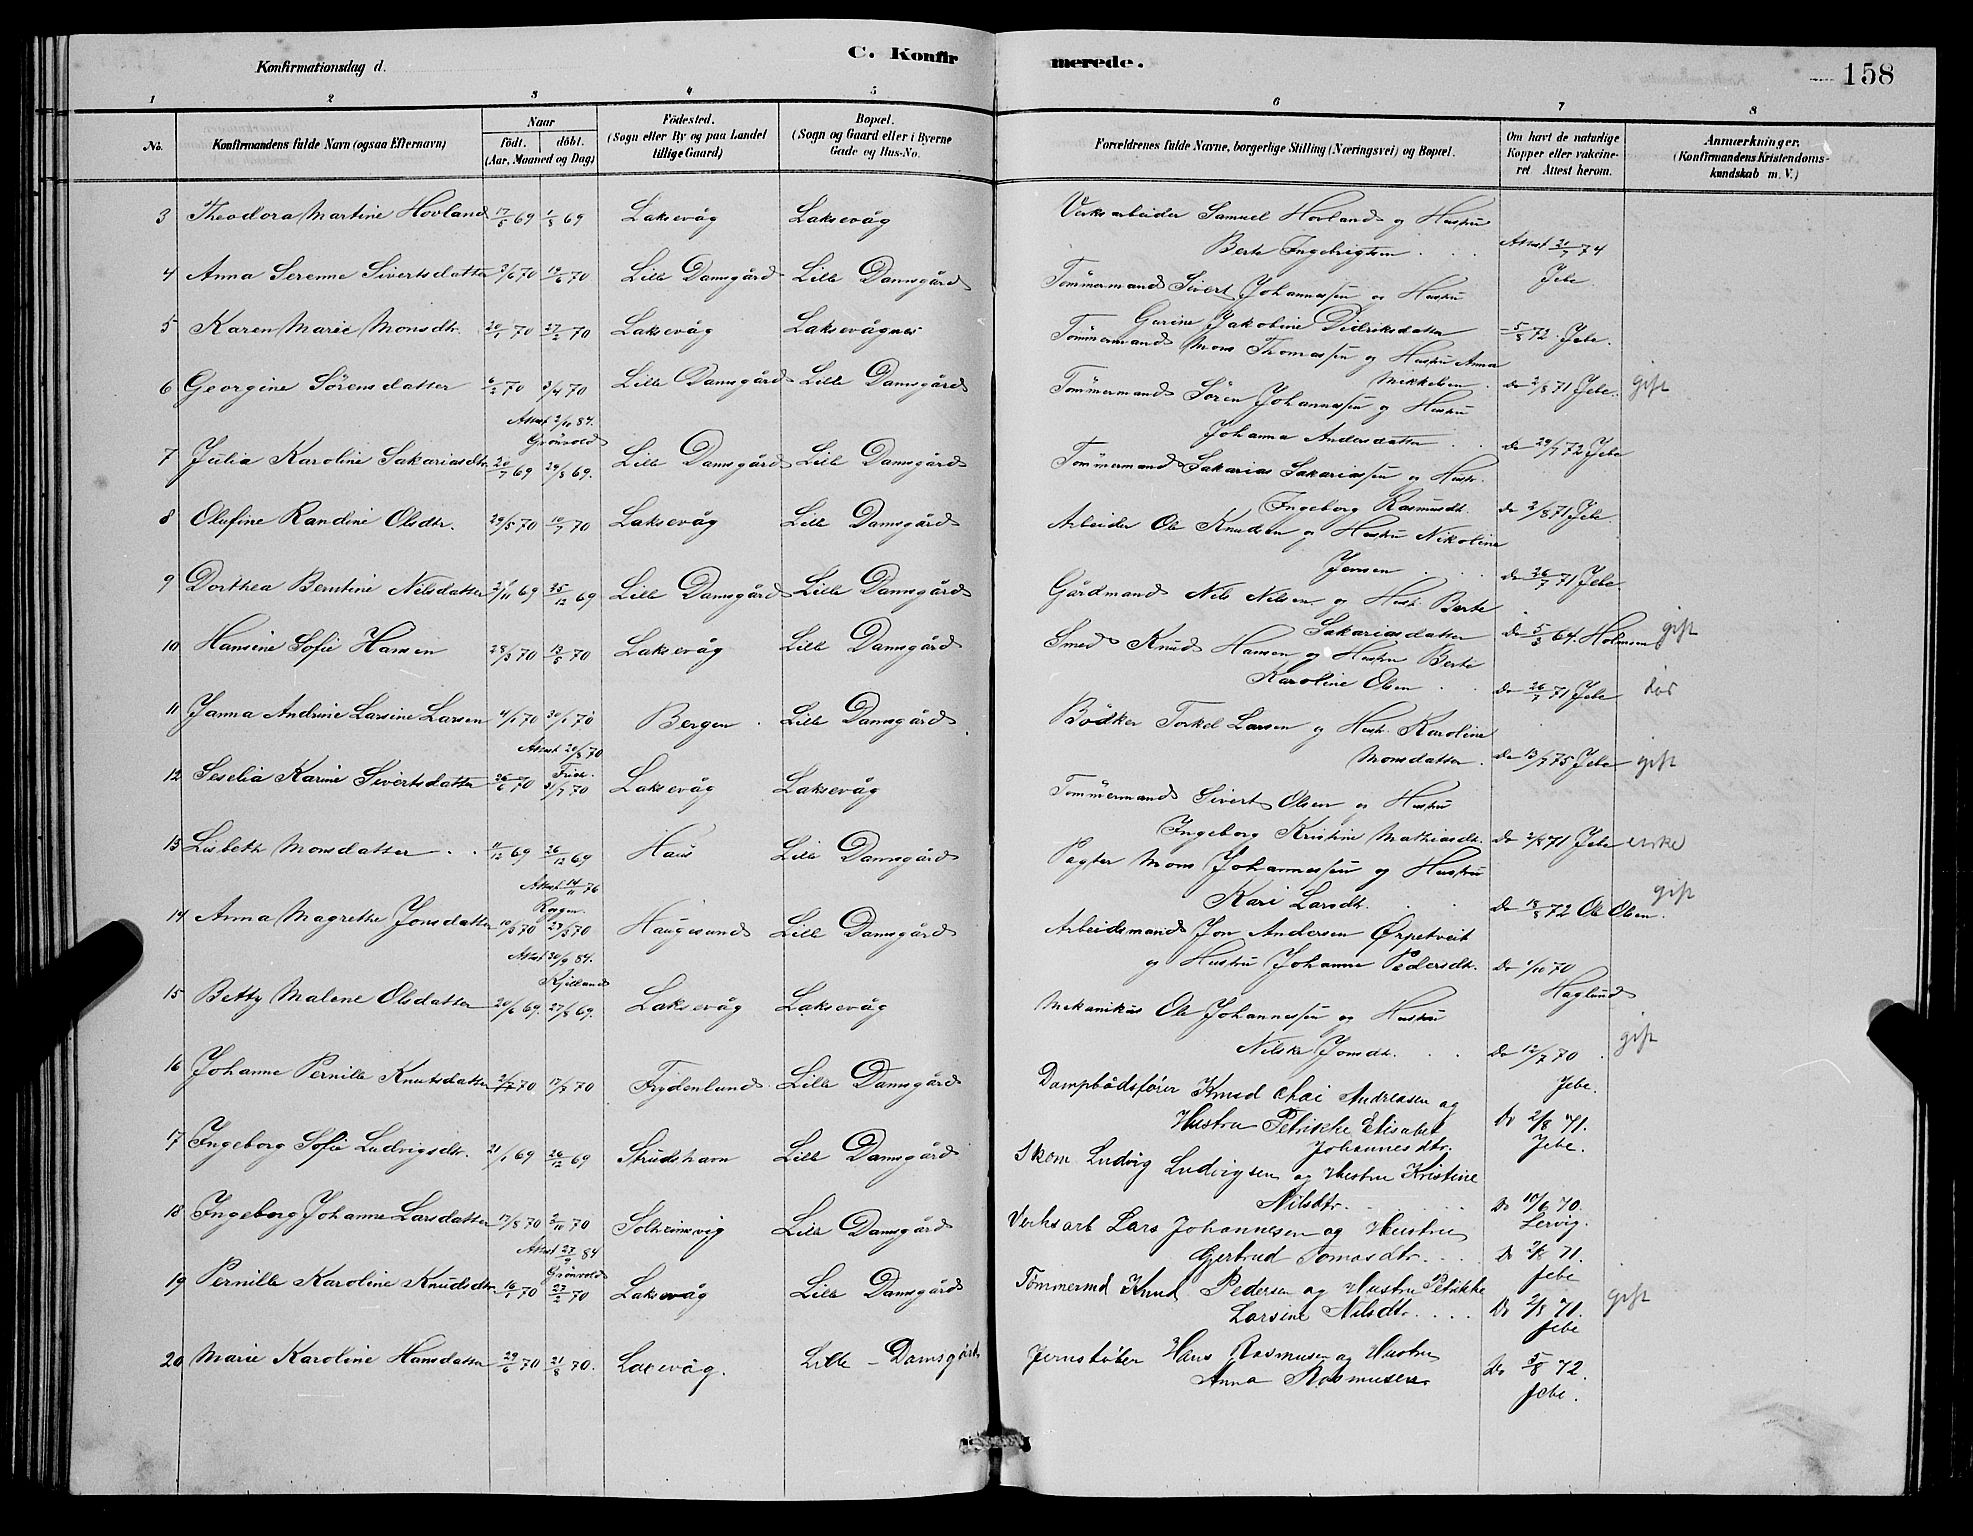 Konfirmationsdag d.
C. Konfir merede.
158
1 2 3 4 5 6 7 8
No. Konfirmandens fulde Navn (ogsaa Efternavn) Naar födt. döbt. (Aar, Maaned og Dag) Födested. (Sogn eller By og paa Landet tillige Gaard) Bopæl. (Sogn og Gaard eller i Byerne Gade og Hus-No. Forældrenes fulde Navne, borgerlige Stilling (Næringsvei) og Bopæl. Om havt de naturlige Kopper eller vakcineret Attest herom. Anmærkninger. (Konfirmandens Kristendomskundskab m. V.)
3 Theodora Martine Hovland 17/5 69 1/8 69 Laksevåg Laksevåg Verksarbeider Samuel Hovland og Hustru
Berte Ingebrigtsen . . . Attest 21/7 74
Jebe
4 Anna Serenne Sivertsdatter 3/6 70 19/6 70 Lille Damsgård Lille Damsgård Tömmermand Sivert Johannessen og Hustru
Gurine Jakobine Didriksdatter 5/8 72. Jebe.
5 Karen Marie Monsdtr. 20/1 70 27/2 70 Laksevåg Laksevågnes Tömmermand Mons Thomassen og Hustru Anna
Mikkelsen . Do 2/8 71 Jebe.
6 Georgine Sörensdatter 6/2 70 3/4 70 Lille Damsgård Lille Damsgård Tömmermand Sören Johannessen og Hustru gift
Attest 2/10 84.
Grönvold
Johanna Andersdatter . . Do 29/7 72 Jebe
7 Julia Karoline Sakariasdtr 20/7 69 29/8 69. Lille Damsgård Lille Damsgård Tömmermand Sakarias Sakariassen og Hustr.
Ingeborg Rasmusdt. Do 2/8 71 Jebe
8 Olufine Randine Olsdtr. 29/5 70 10/7 70 Laksevåg Lille Damsgård Arbeider Ole Knudsen og Hustru Nikoline
Jensen . . . Do 26/7 71 Jebe.
9 Dorthea Berntine Nilsdatter 2/11 69 25/12 69 Lille Damsgård Lille Damsgård Gårdmand Nils Nilsen og Hust. Berte
Sakariasdatter Do 5/3 64. Holmsen gift
10 Hansine Sofie Hansen 28/3 70 13/5 70 Laksevåg Lille Damsgård Smed Knud Hansen og Hustru Berte
Karoline Olsen . . Do 26/7 71 Jebe
11 Janna Andrine Larsine Larsen 4/1 70 30/1 70 Bergen . Lille Damsgård Bödker Torkel Larsen og Hust. Karoline
Attest 20/8 70
Monsdatter . Do 13/7 75 Jebe gift
12 Seselia Karine Sivertsdatter 26/6 70 31/7 70 Laksevåg Laksevåg Tömmermand Sivert Olsen og Hustru
Ingeborg Kristine Mathiasdt. Do 2/8 71 Jebe enke
13 Lisbeth Monsdatter . . 11/12 69 26/12 69 Haus Lille Damsgård Pagter Mons Johannessen og Hustru
Attest 14/11 76
Kari Larsdt. . . Do 18/8 72 Ole Olsen. gift
14 Anna Magrethe Jonsdatter 10/3 70 27/3 70 Haugesund Lille Damsgård Arbeidsmand Jon Andersen Ørpetveit
Attest 30/9 84.
Kjelland
og Hustru Johanne Pedersdt. Do 1/10 70
Haglund
15 Betty Malene Olsdatter 20/6 69. 27/8 69. Laksevåg Laksevåg Mekanikus Ole Johannessen og Hustru
Nilske Jonsdt. . . Do 12/7 70 . gift
Jebe.
16 Johanne Pernille Knutsdatter 2/7 70 17/7 70 Frydenlund Lille Damsgård Dampbådsförer Knud Andreasen og
Hustru Petrikke Elisabet Do 2/8 71.
Johannesdtr. Jebe.
17 Ingeborg Sofie Ludvigsdtr. 21/1 69 26/12 69 Strudshavn Lille Damsgård Skom. Ludvig Ludvigsen og Hustru Kristine
Nilsdtr. . . . Do 10/6 70.
Lervig.
18 Ingeborg Johanne Larsdatter 17/8 70 2/11 70 Solheimsvig Lille Damsgård Verksarb Lars Johannesen og Hustru
Attest 27/9 84
Grönvold
Gjertrud Tomasdtr. . . Do 2/8 71.
Jebe
19 Pernille Karoline Knudsdtr 16/1 70 27/2 70 Laksevåg Lille Damsgård Tömmermd Knud Pedersen og Hustru Petrikke
Larsine Nilsdtr. . . . Do 2/8 71. gift
Jebe
20 Marie Karoline Hansdatter 29/6 70 21/8 70. Laxevåg. Lille - Damsgård Jernstöber Hans Rasmusen og Hustru
Anna Rasmusen Do 5/8 72.
Jebe.